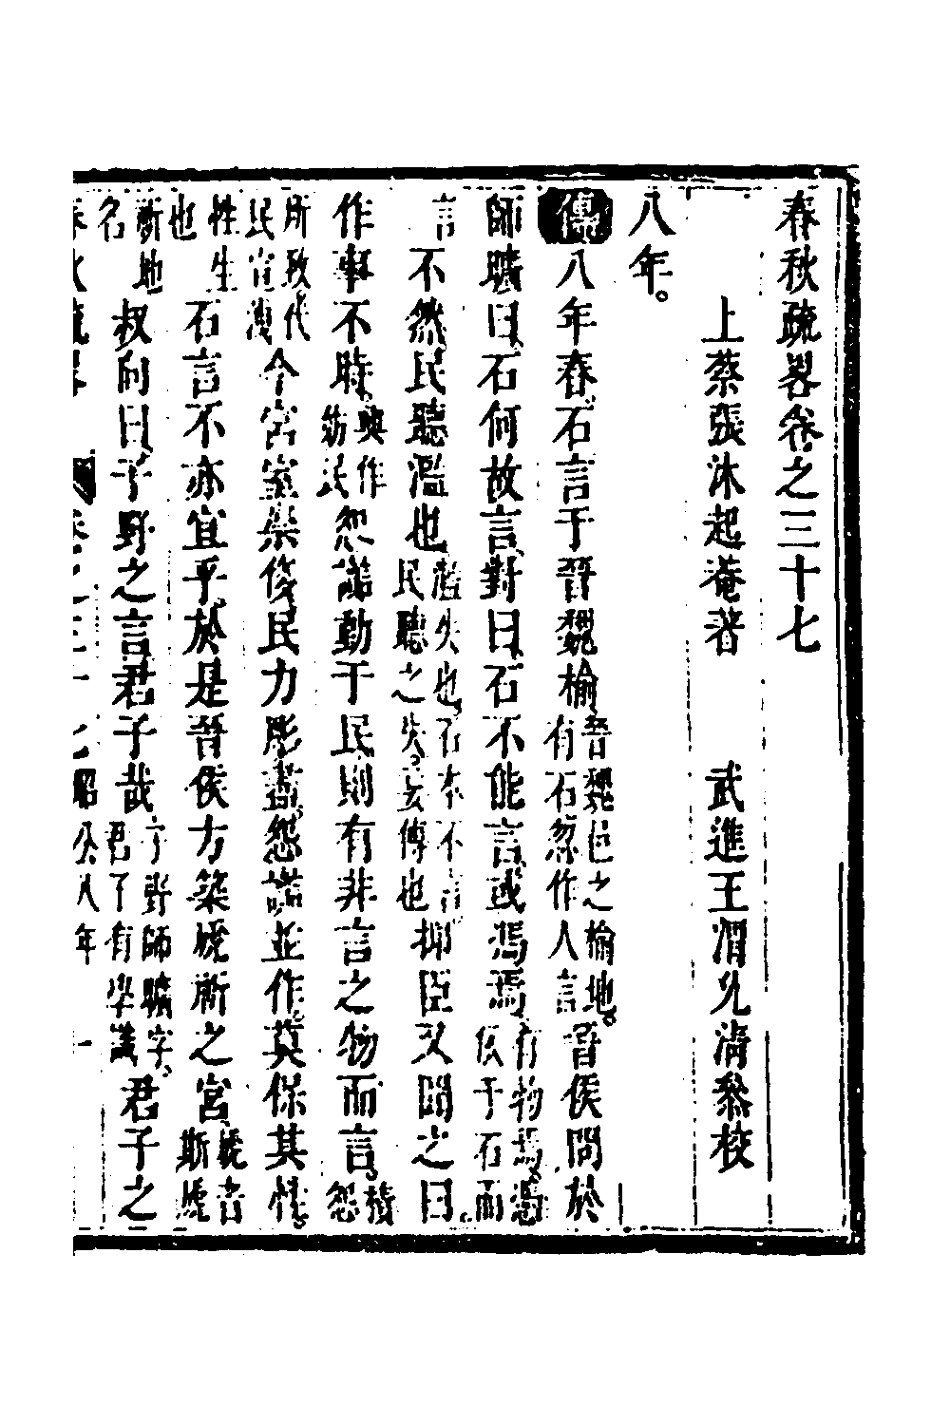 春秋疏畧卷之三十七
上蔡張沐起菴著　武進王渭允清叅校
八年。
傳八年春石言于晉魏榆晉魏邑之榆地。有石忽作人言晉侯問於
師曠曰石何故言對曰石不能言或馮焉有物馮。憑依于石而
言不然民聽濫也濫失也。石本不言民聽之失。妄傳也抑臣又聞之曰
作事不時興作妨民怨讟動于民則有非言之物而言。積怨
所致代民宣洩今宮室崇侈民力彫盡。怨讟並作。莫保其性。
性生也石言不亦宜乎於是晉侯方築虒祁之宮虒音斯虒
祁地名叔向曰子野之言君子哉子野師曠字。君子有學識君子之
春秋疏畧　卷之三十七昭公八年　一